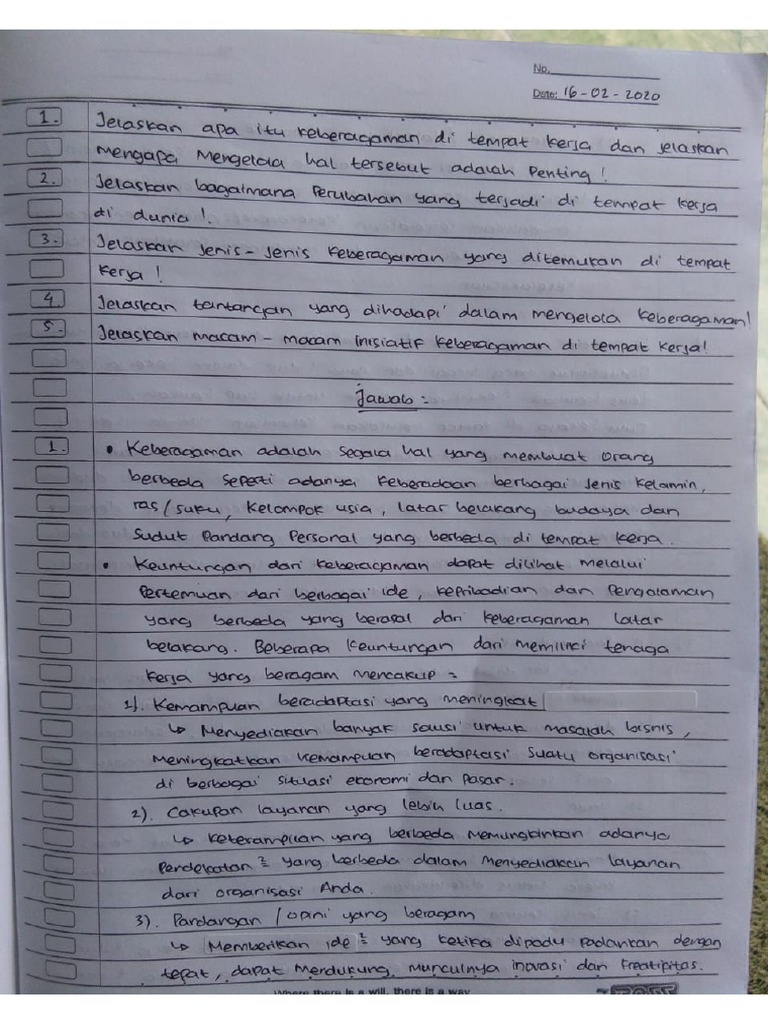 No.
Date: 16-02-2020
1. Jelaskan apa itu keberagaman di tempat kerja dan jelaskan
mengapa mengelola hal tersebut adalah penting!
2. Jelaskan bagaimana perubahan yang terjadi di tempat kerja
di dunia!
3. Jelaskan jenis-jenis keberagaman yang ditemukan di tempat
kerja!
4 Jelaskan tantangan yang dihadapi dalam mengelola keberagaman!
5. Jelaskan macam-macam inisiatif keberagaman di tempat kerja!
Jawab =
1. • Keberagaman adalah segala hal yang membuat orang
berbeda seperti adanya keberadaan berbagai jenis kelamin,
ras/suku, kelompok usia, latar belakang budaya dan
sudut pandang personal yang berbeda di tempat kerja.
• Keuntungan dari keberagaman dapat dilihat melalui
pertemuan dari berbagai ide, kepribadian dan pengalaman
yang berbeda yang berasal dari keberagaman latar
belakang. Beberapa keuntungan dari memiliki tenaga
kerja yang beragam mencakup =
1). Kemampuan beradaptasi yang meningkat
↳ Menyediakan banyak solusi untuk masalah bisnis,
meningkatkan kemampuan beradaptasi suatu organisasi
di berbagai situasi ekonomi dan pasar.
2). Cakupan layanan yang lebih luas.
↳ Keterampilan yang berbeda memungkinkan adanya
pendekatan² yang berbeda dalam menyediakan layanan
dari organisasi Anda.
3). Pandangan / opini yang beragam
↳ Memberikan ide² yang ketika dipadu padankan dengan
tepat, dapat mendukung munculnya inovasi dan kreatipitas.
Where there is a will, there is a way